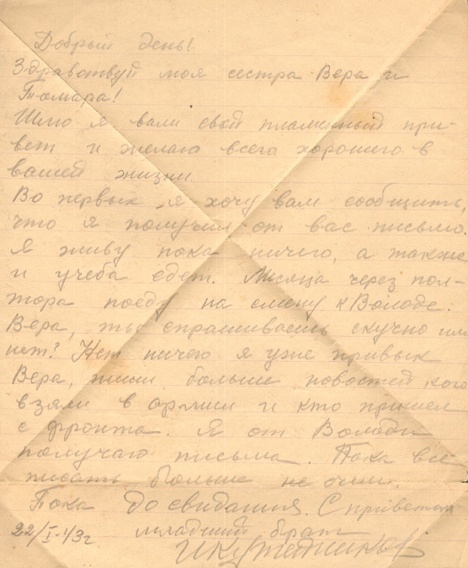 Добрый день!
Здравствуй моя сестра Вера и
Тамара!
Шлю я вам свой пламеный при-
вет и желаю всего хорошего в
вашей жизни
Во первых я хочу вам сообщить,
что я получил от вас письмо.
Я живу пока ничего, а также
и учеба едет. Месяца через пол-
тора поеду на смену к Володе.
Вера, ты спрашиваешь скучно или
нет? Нет ничего я уже привык
Вера, пиши больше новостей кого
взяли в армию и кто пришел
с фронта. Я от Володи
получаю письма. Пока все
писать больше не
Пока до свидания. С приветом
22/I-43г младший брат